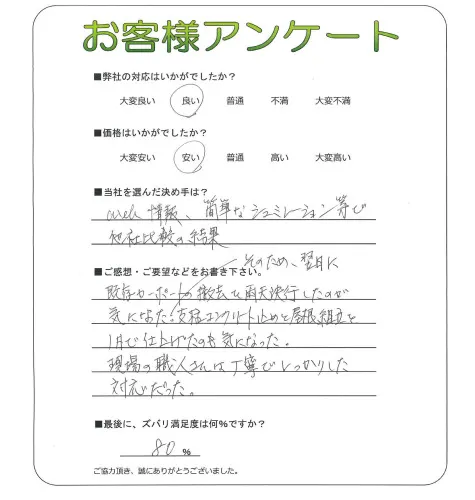 お客様アンケート
■弊社の対応はいかがでしたか？
大変良い 良い 普通 不満 大変不満
■価格はいかがでしたか？
大変安い 安い 普通 高い 大変高い
■当社を選んだ決め手は？
web 情報、簡単なシュミレーション等で
他社比較の結果
そのため、翌日に
■ご感想・ご要望などをお書き下さい。
既存カーポートの撤去も雨天決行したのが
気になった。支柱コンクリート止めと屋根組立を
1日で仕上げたのも気になった。
現場の職人さんは丁寧でしっかりした
対応だった。
■最後に、ズバリ満足度は何％ですか？
80 %
ご協力頂き、誠にありがとうございました。